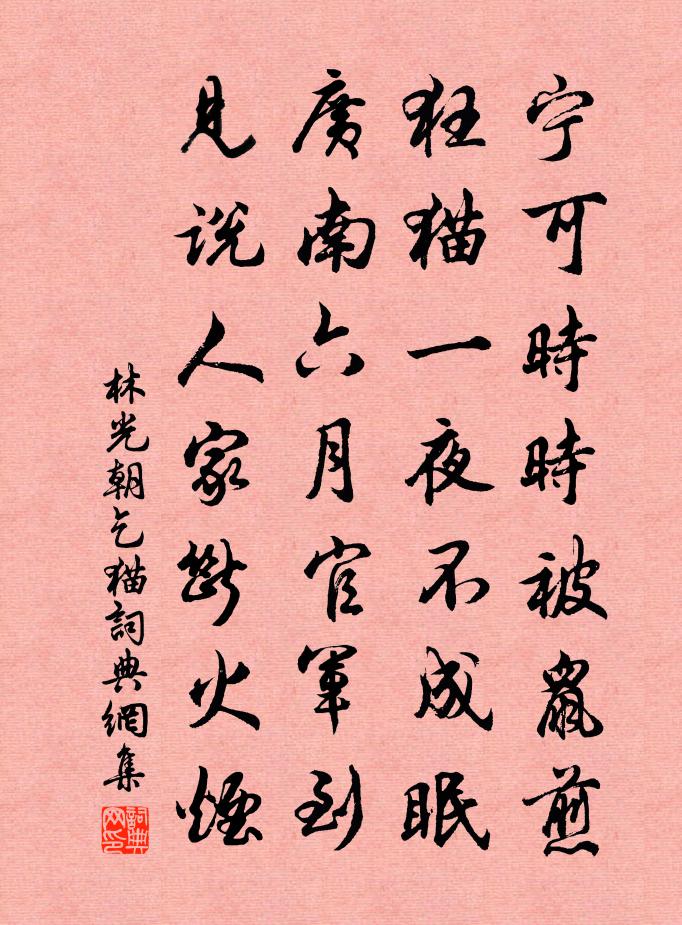 宁可時時被鼠煎
狂猫一夜不成眠
廣南六月官軍到
見説人家斷火煙
林光朝乞猫詞典網集
詞典网印